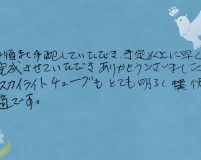 順調に手配していただき、予定以上に早く
完成させていただき ありがとうございました
スカイライトチューブも とても明るく 快
適です。